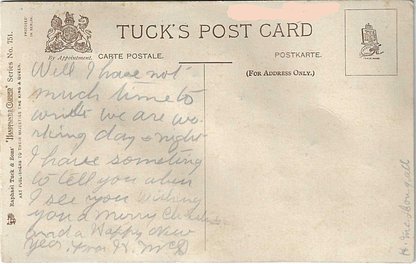 TUCK'S POST CARD
By Appointment.
CARTE POSTALE.
POSTKARTE.
(FOR ADDRESS ONLY.)
Raphael Tuck & Sons' Series No. 751.
ART PUBLISHERS TO THEIR MAJESTIES THE KING & QUEEN.
Well I have not
much time to
write we are wo-
rking day & night
I have someting
to tell you when
I see you Wishing
you a Merry Christmas
and a Happy New
Year. from H. McD
H. MacDougall